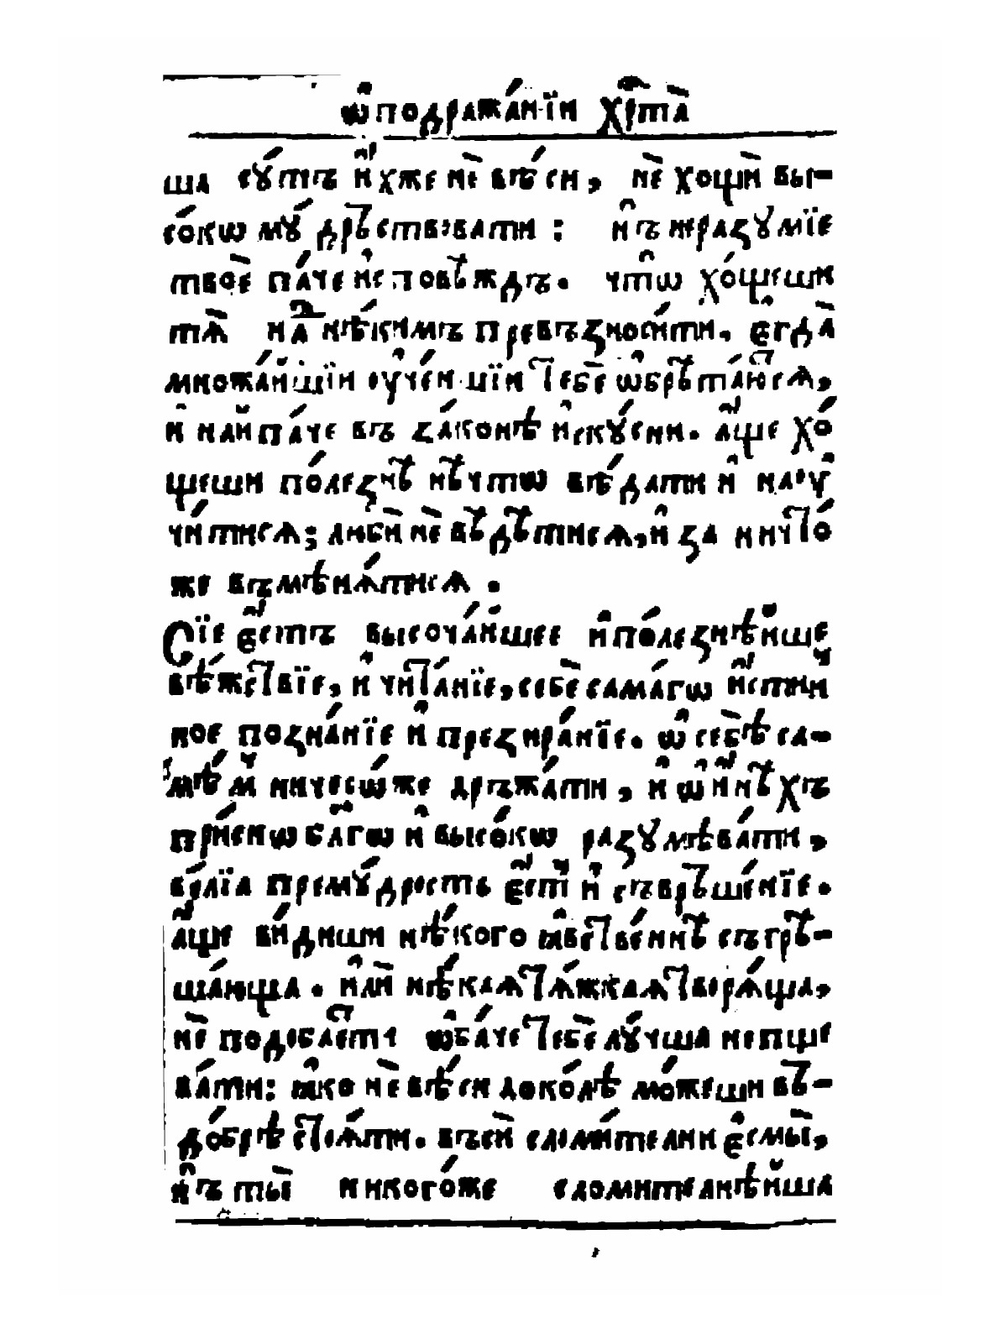 ѡ҆ подража́нїи хр҃та̀
ша сꙋ́ть и҆́хже нѐ вѣ́си, нѐ хощѝ вы-
со́кѡ мꙋ́дръствовати : нъ неразꙋмїе
твоѐ па́че и҆сповѣ́ждь. что̀ хо́щеши
тѧ̀ над̾ нѣ́кимъ превъзноси́ти, є҆гда̀
множа́йшїи ᲂу҆че́ншїи тебѐ ѡ҆брѣта́ютсѧ,
и҆ найпа́че въ зако́нѣ и҆скꙋ́сни. а҆́ще хо́
щеши поле́знѣ нѣ́чтѡ вѣ́дати и҆ наꙋ
чи́тисѧ; любѝ нѐ вѣ́дѣтисѧ, и҆ за ничто́
же възмѣнѧ́тисѧ .
Сїе є҆́сть высоча́йшее и҆ поле́знѣйше
вѣ́жествїе, и҆ чита́нїе, себѐ самаго и҆́стин
ное позна́нїе и҆ презира́нїе. ѡ҆ себѣ̀ са-
мѣ́м ничесо́же дръжа́ти, и҆ ѡ҆ и҆нѣ́хъ
при́снѡ бл҃гѡ и҆ высо́кѡ разꙋмѣва́ти,
ве́лїа премꙋ́дрость є҆́ст и҆ съвръше́нїе.
а҆́ще ви́диши нѣ́кого ꙗ҆́вственнѣ съгрѣ-
ша́юща . и҆лѝ нѣ́каѧ тѧ́жкаѧ творѧ́ща,
нѐ подоба́етъ ѡ҆ба́че тебѐ лꙋ́чша непще
ва́ти: ꙗ҆́ко нѐ вѣ́си доко́лѣ мо́жеши въ-
до́брѣ стоѧ́ти. въсѝ сломи́телни є҆смы̀,
нъ ты̀ никого́же сломителнѣ́йша